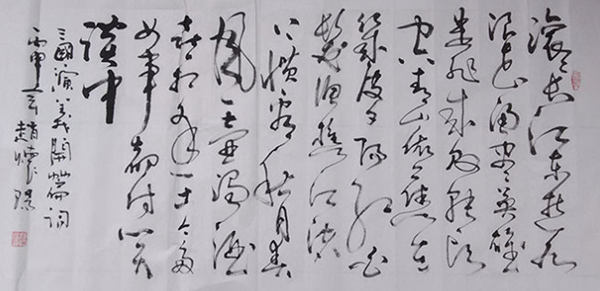 滚滚长江东逝水
浪花淘尽英雄
是非成败转头
空青山依旧在
几度夕阳红白
发渔樵江渚
上惯看秋月春
风一壶浊酒
喜相逢古今多
少事都付笑
谈中
三國演义開篇词
丙申 趙